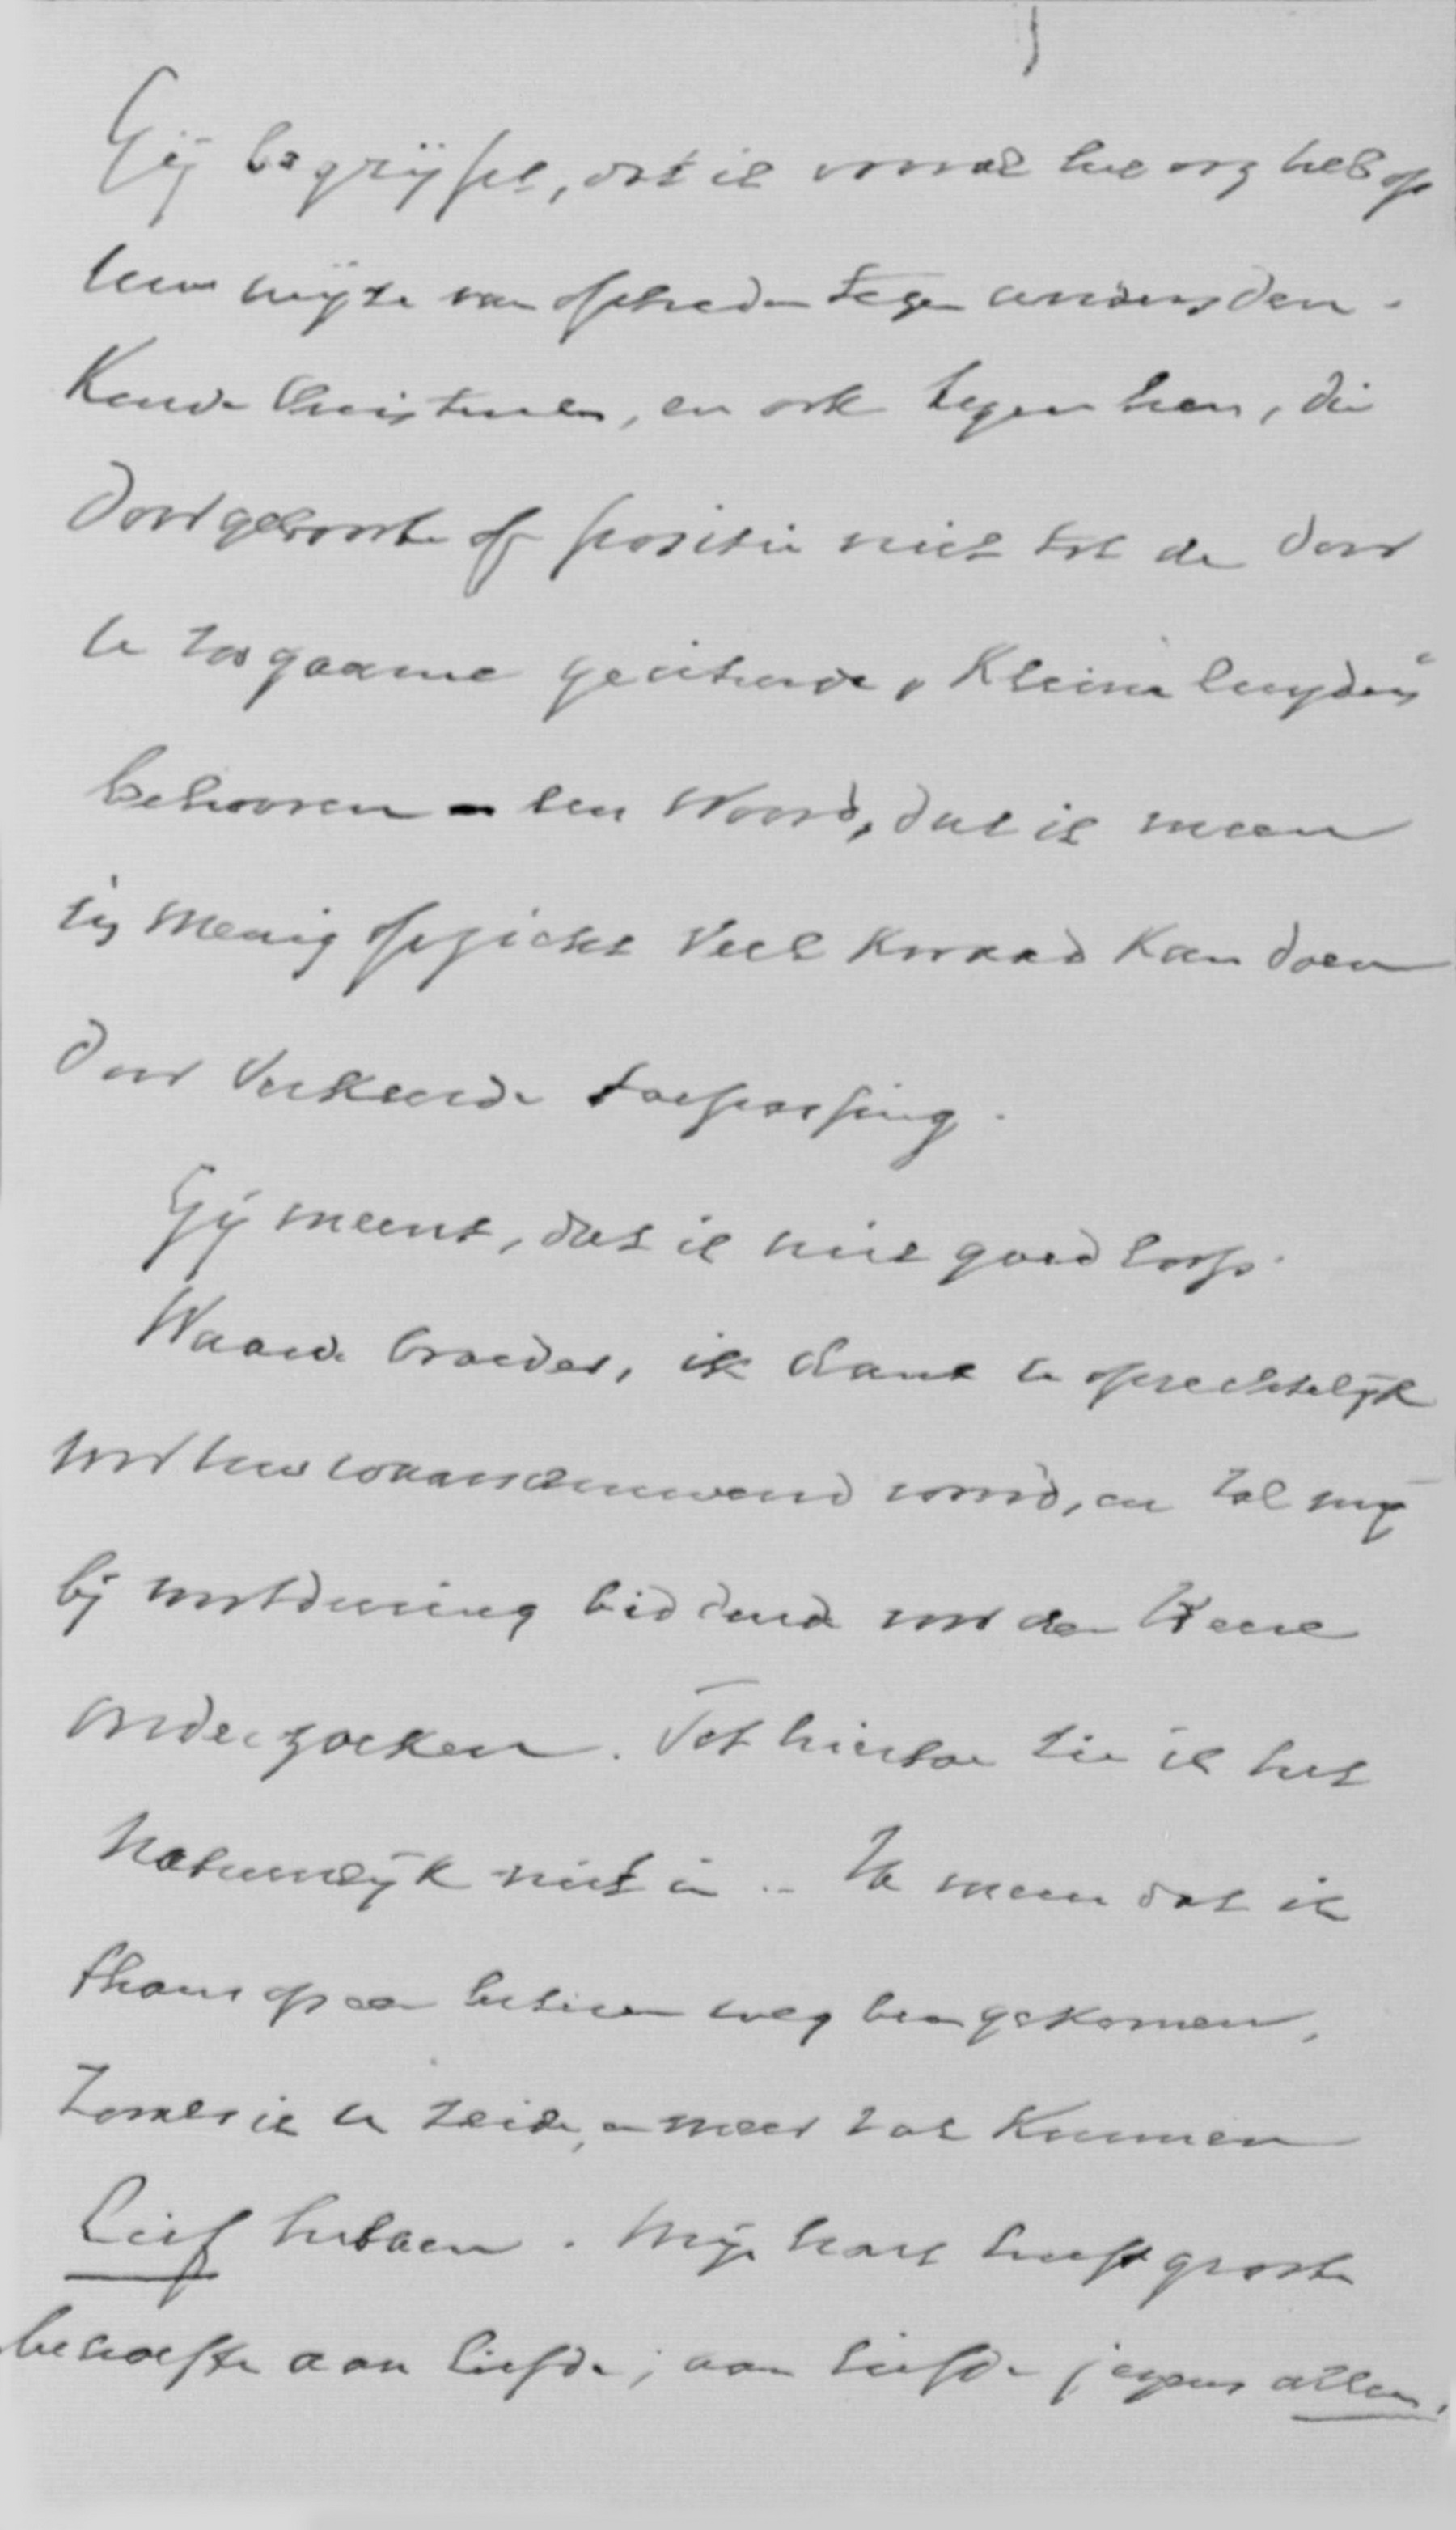 Gij begrijpt, dat ik vooral het oog heb op
Uwe wijze van optreden tegen andersden-
kende Christenen, en ook tegen hen, die
door geboorte of positie niet tot de door
U zoo gaarne geciteerde „Kleine luyden"
behooren - een woord, dat ik meen
in menig opzicht veel kwaad kan doen
door verkeerde toepassing.
Gij meent, dat ik niet goed loop.
Waarde broeder, ik dank U oprechtelijk
voor Uw waarschuwend woord, en zal mij
bij voortduring biddend voor den Heere
onderzoeken. Tot hiertoe zie ik het
natuurlijk niet in.. Ik meen dat ik
thans op een beteren weg ben gekomen,
zooals ik U zeide, en meer zal kunnen
lief hebben. Mijn hart heeft groote
behoefte aan liefde; aan liefde jegens allen.